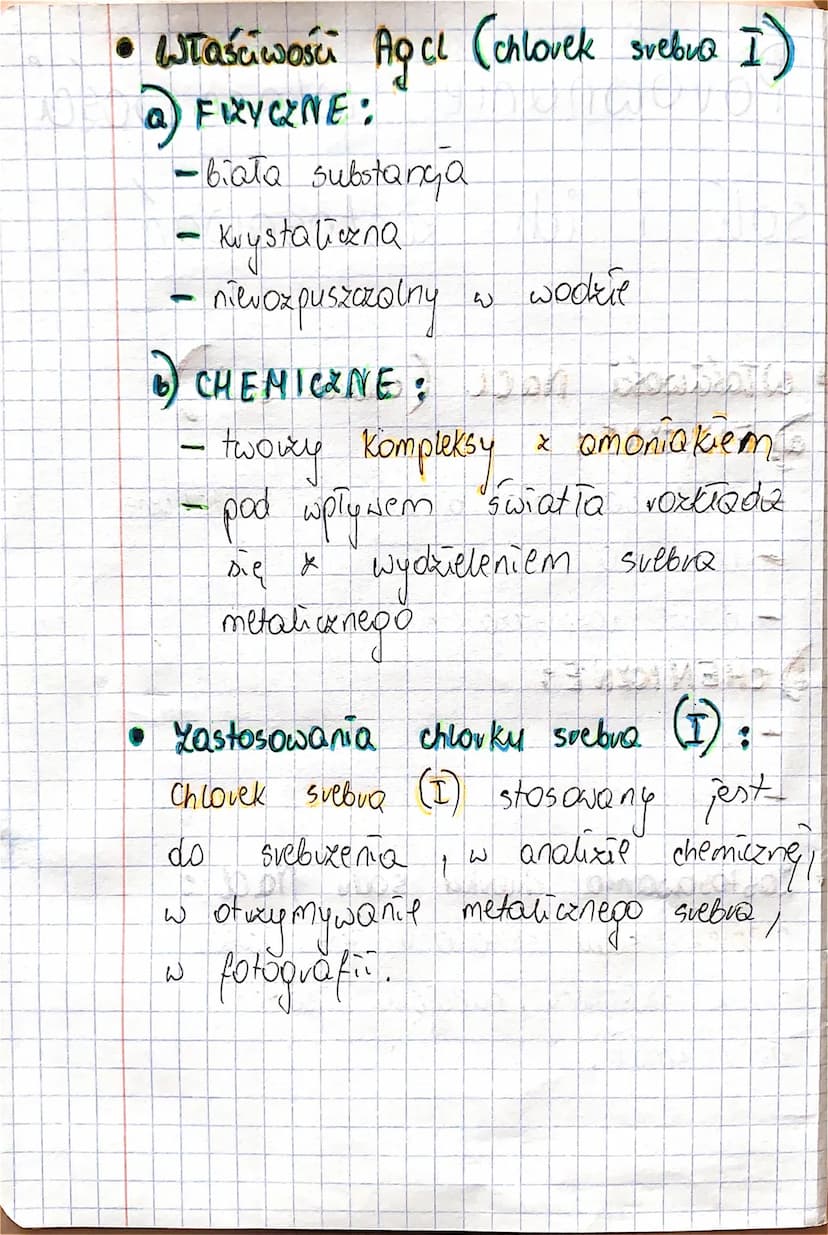 • Właściwości AgCl (chlorek srebra I)
a) FIZYCZNE:
- biała substancja
- krystaliczna
- nierozpuszczalny w wodzie
b) CHEMICZNE:
- tworzy kompleksy z amoniakiem
- pod wpływem światła rozkłada
się z wydzieleniem srebra
metalicznego
• Zastosowania chlorku srebra (I):
Chlorek srebra (I) stosowany jest
do srebrzenia, w analizie chemicznej,
w otrzymywanie metalicznego srebra,
w fotografii.